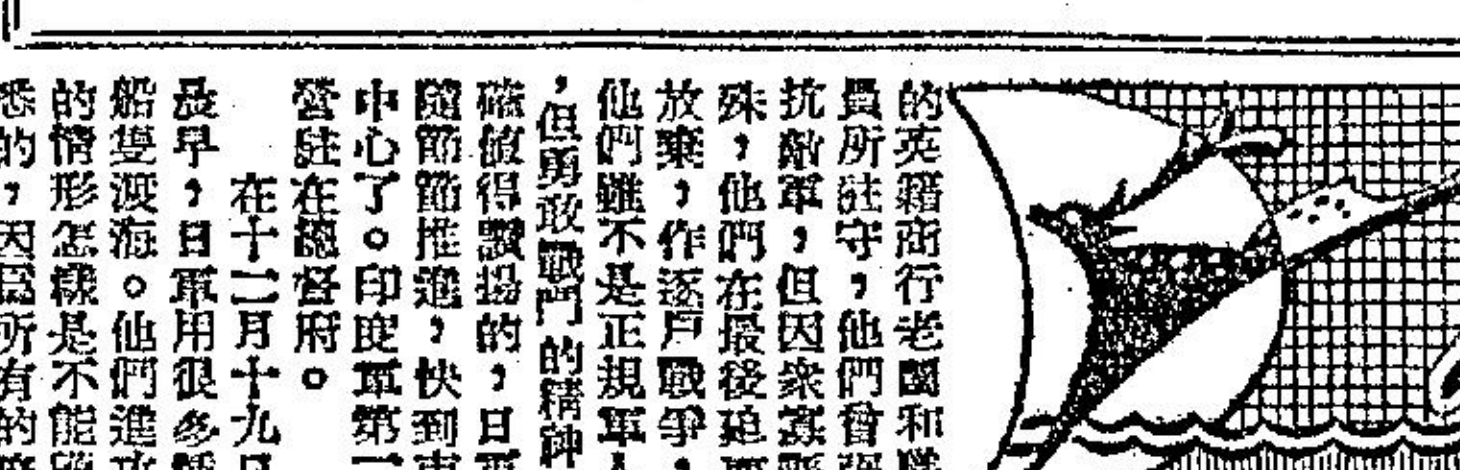 的英籍商行老闆和職
員所駐守，他們曾
抗敵軍，但因衆寡懸
殊，他們在最後
放棄，作逐戶戰爭，
他們雖不是正規軍人
，但勇敢戰鬥的精神
確值得讚揚的，日軍
隨節節推進，快到
中心了。印度軍第一
營駐在總督府。
在十二月十九日
最早，日軍用很多
船隻渡海。他們進攻
的情形怎樣是不能
悉的，因爲所有的